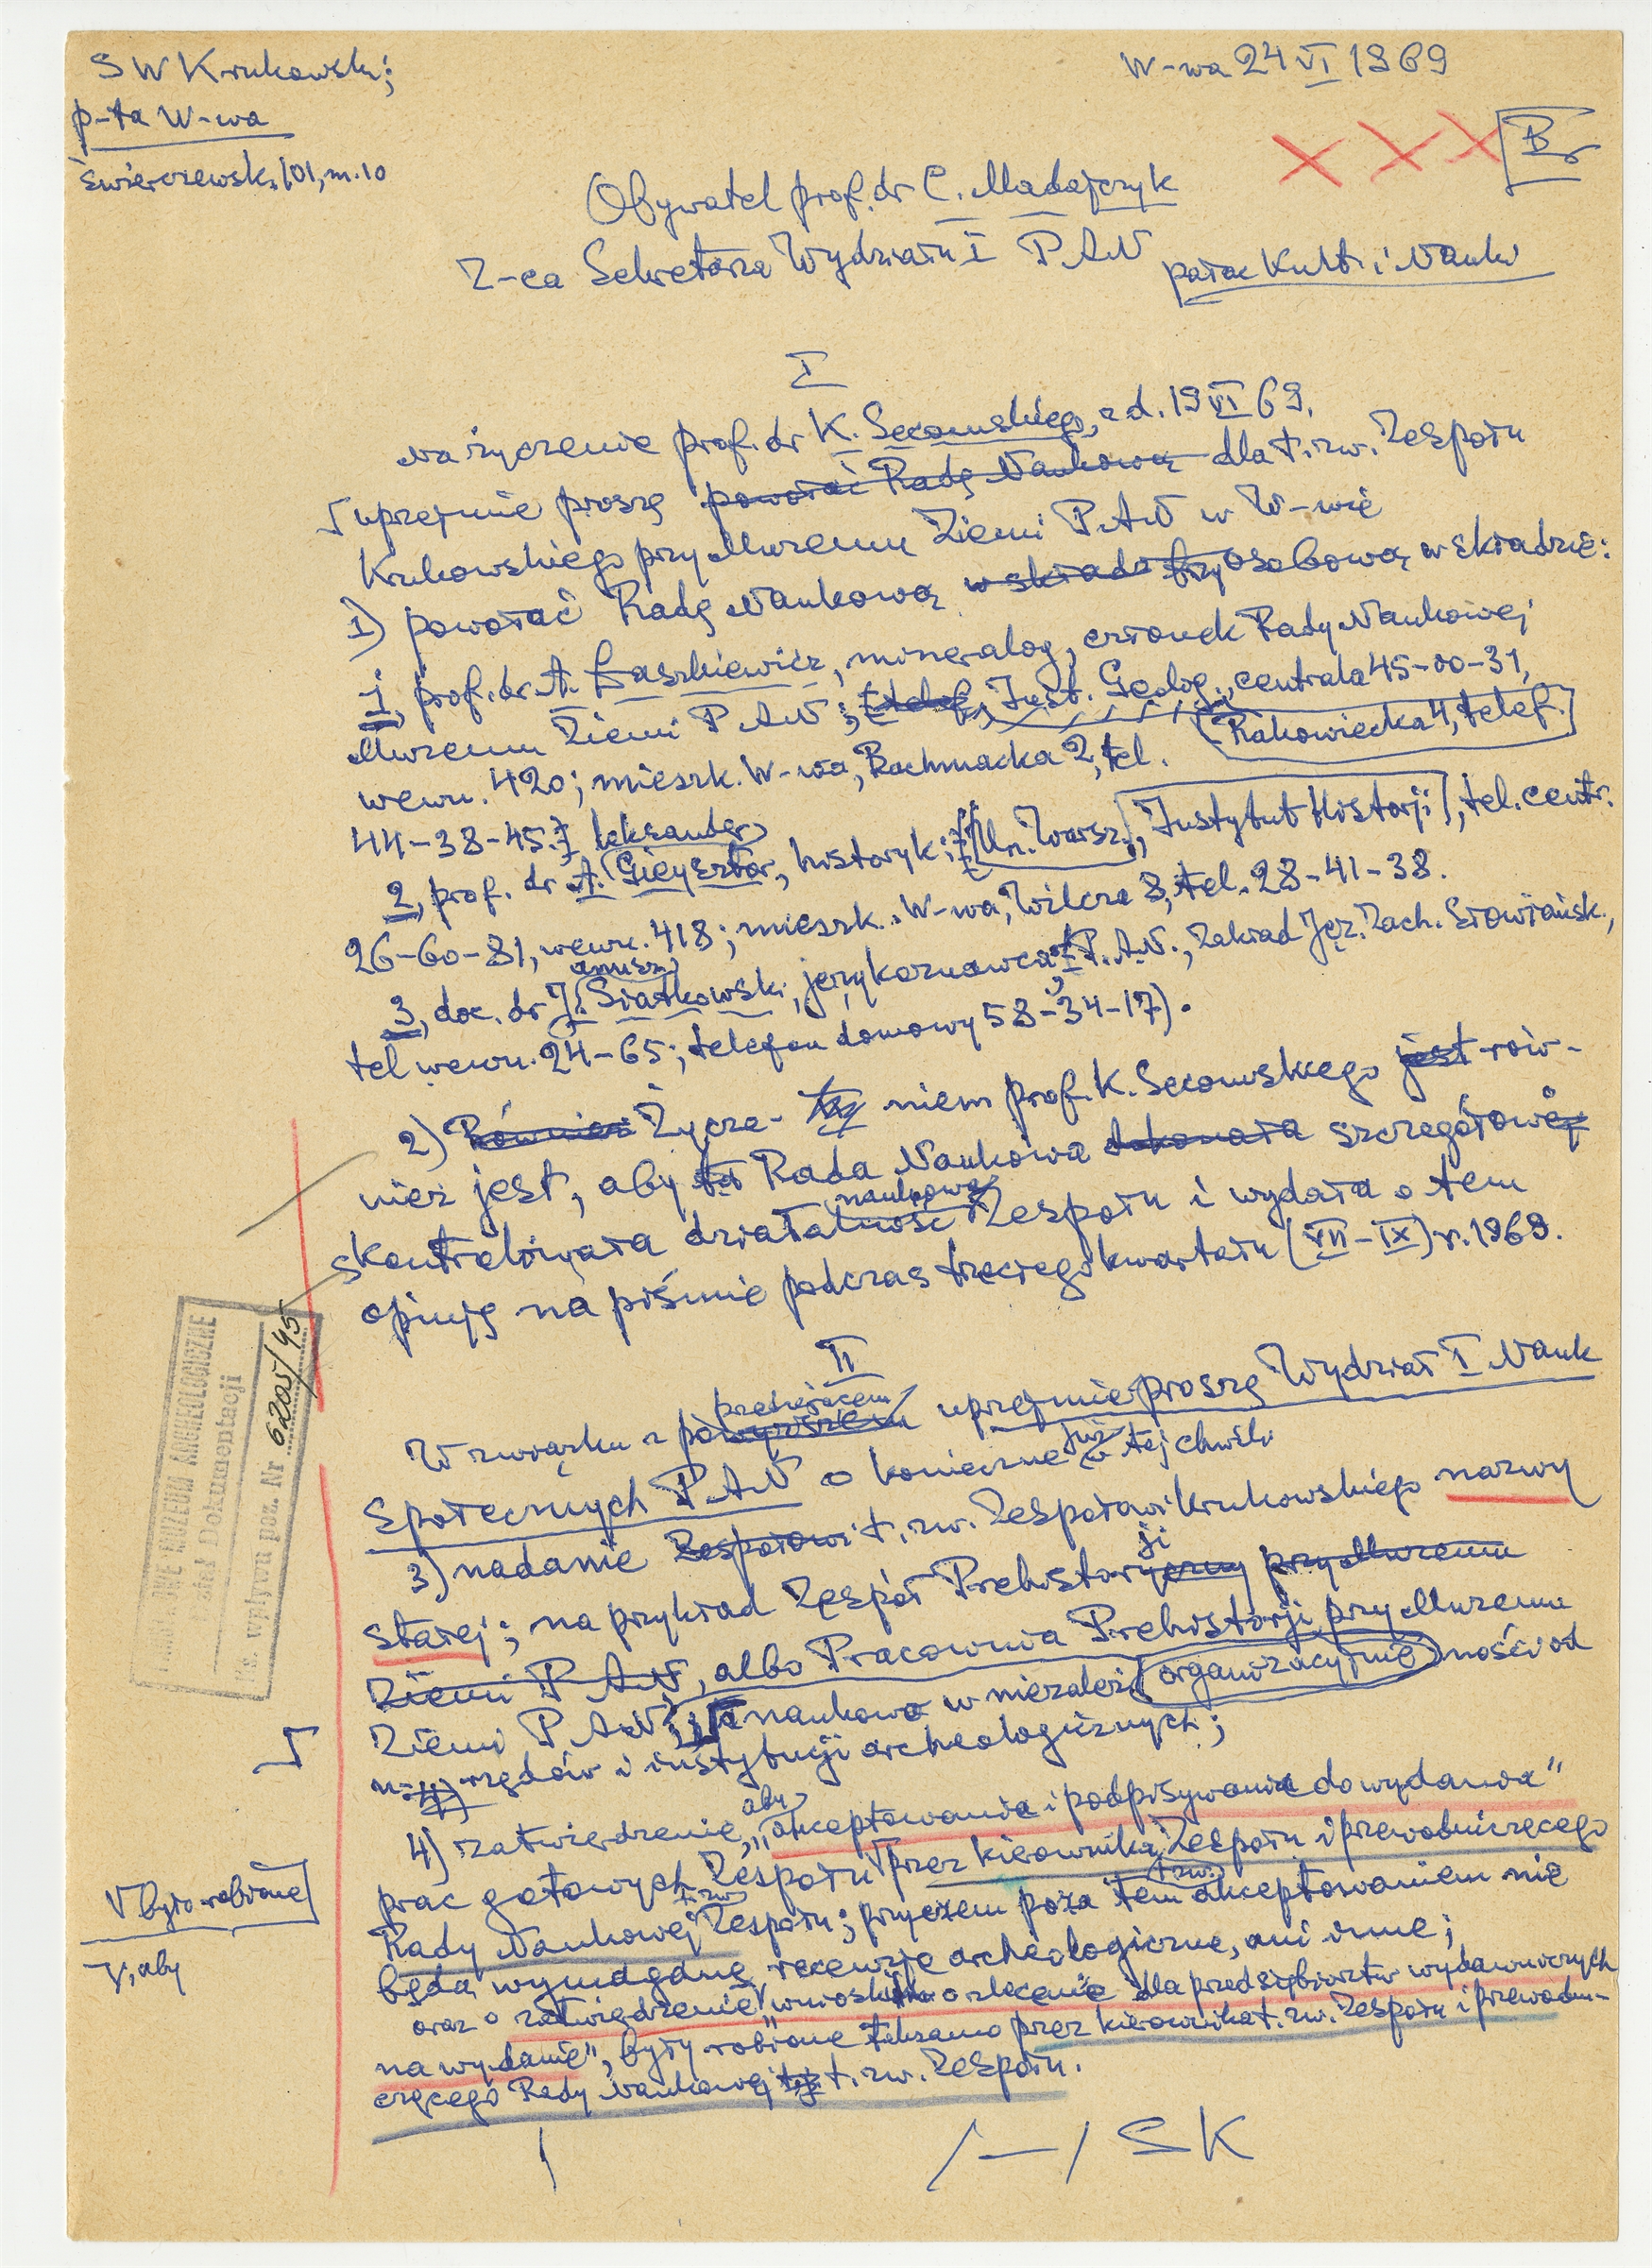 S W Krukowski;
p-ta W-wa
Świerczewsk. 101, m. 10
W-wa 24 VI 1969
X X X
Obywatel prof. dr C. Madajczyk
Z-ca Sekretarza Wydziału I P A N
pałac Kult. i Nauki
I
Na życzenie prof. dr K. Secomskiego, z d. 19 VI 69,
uprzejmie proszę powołać Radę Naukową dla t. zw. Zespołu
Krukowskiego przy Muzeum Ziemi P A N w W-wie
1) powołać Radę Naukową w składzie trzyosobową w składzie:
1, prof. dr A. Łaszkiewicz, mineralog, członek Rady Naukowej
Muzeum Ziemi P A N; telef, Inst. Geolog., centrala 45-00-31,
Rakowiecka 4, telef.
wewn. 420; mieszk. W-wa, Bachmacka 2, tel.
44-38-45.
leksander
2, prof. dr A. Gieysztor, historyk; Un. Warsz., Instytut Historji, tel. centr.
26-60-81, wewn. 418; mieszk. W-wa, Wilcza 8, tel. 28-41-38.
anusz
3, doc. dr J. Siatkowski, językoznawca; P. A. N., Zakład Jęz. Zach. Słowiańsk.,
tel wewn. 24-65; telefon domowy 58-34-17).
2) Również Życze- niem prof. K. Secomskiego jest rów-
nież jest, aby ta Rada Naukowa dokonała szczegółowej
naukową
skontrolowała działalność Zespołu i wydała o tem
opinję na piśmie podczas trzeciego kwartału (VII-IX) r. 1969.
II
przedniem
W związku z powyższem uprzejmie proszę Wydział I Nauk
już
Społecznych P A N o konieczne z tej chwili
3) nadanie Zespołowi t. zw. Zespołowi Krukowskiego nazwy
ji
stałej; na przykład Zespół Prehistoryczny przy Muzeum
Ziemi P A N, albo Pracownia Prehistorji przy Muzeum
Ziemi P A N naukowo w niezależ organizacyjnie ności od
urzędów i instytucji archeologicznych;
aby
4) zatwierdzenie, „akceptowania i podpisywania do wydania”
prac gotowych Zespołu przez kierownika Zespołu i przewodniczącego
t. zw.
t. zw.
Rady Naukowej Zespołu; przyczem poza tem akceptowaniem nie
będą wymagane recenzje archeologiczne, ani inne;
oraz o zatwierdzenie wniosków o zlecenie dla przedsiębiorstw wydawniczych
na wydanie”, były robione tak samo przez kierownika t. zw. Zespołu i przewodni-
czącego Rady Naukowej tej t. zw. Zespołu.
V było robione
V, aby
/—/ S K
PAŃSTWOWE MUZEUM ARCHEOLOGICZNE
Dział Dokumentacji
Ks. wpływu poz. Nr 6205/95